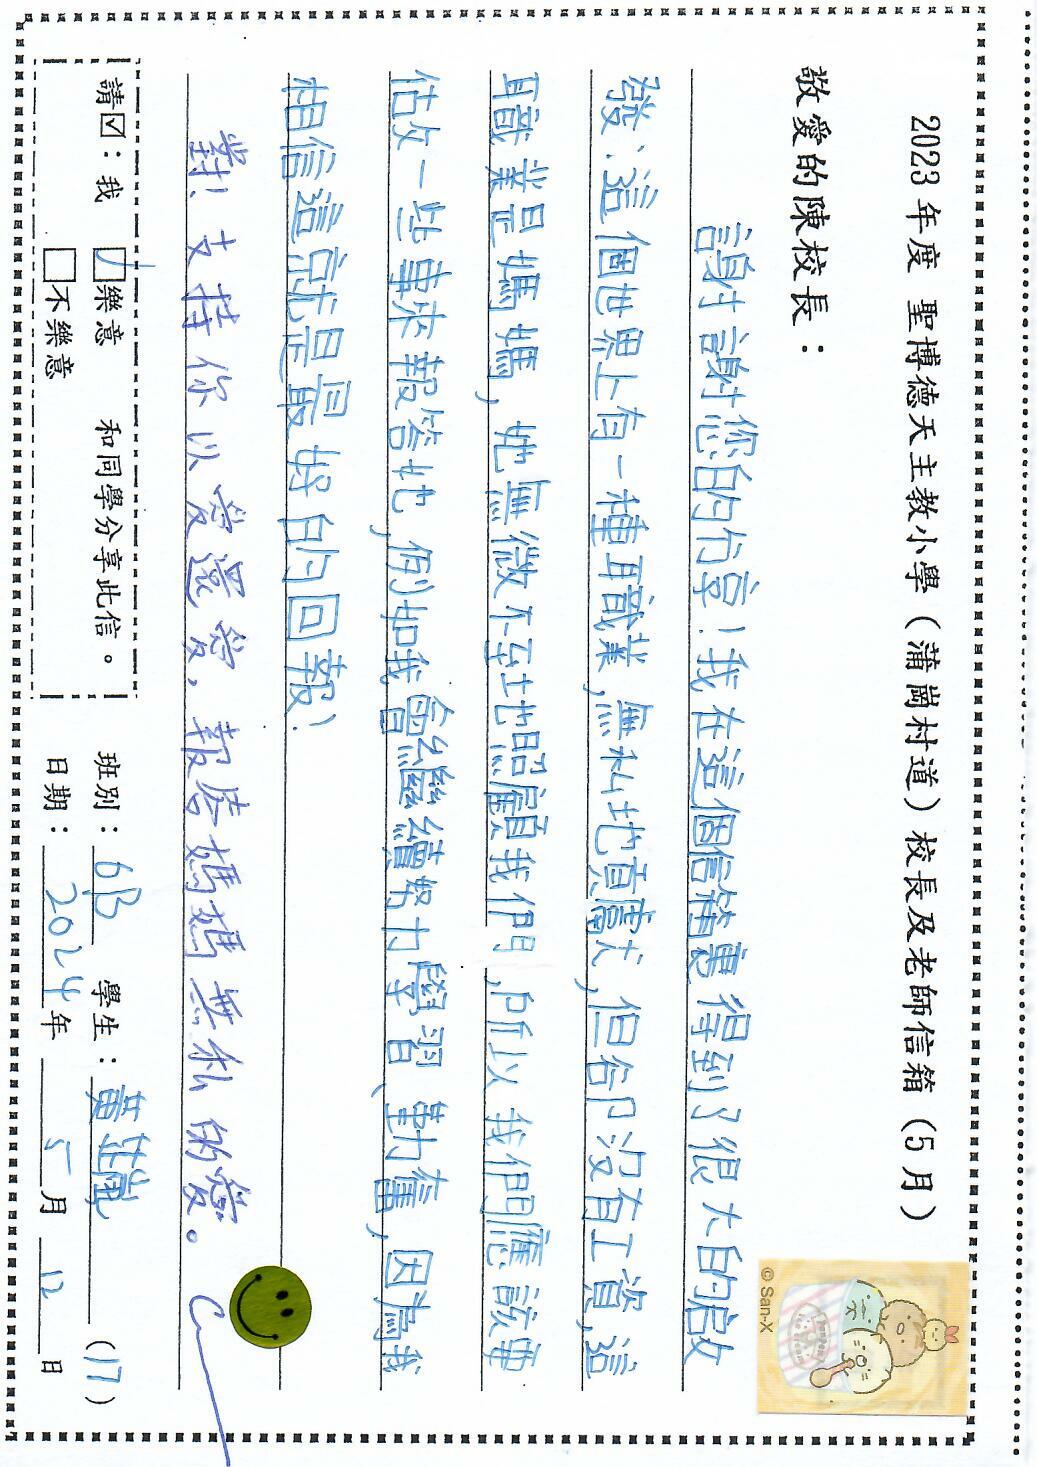 2023年度 聖博德天主教小學（蒲崗村道）校長及老師信箱（5月）
敬愛的陳校長：
謝謝您的分享！我在這個信箱裏得到了很大的啟
發：這個世界上有一種職業，無私地貢獻，但卻沒有工資，這
職業是媽媽，她無微不至地照顧我們，所以我們應該要
估攵一些事來報答她，例如我會繼續努力學習、勤奮，因為我
相信這就是最好的回報！
對！支持你以愛還愛，報答媽媽無私的愛。
請☑：我 ☑樂意 和同學分享此信。
☐不樂意
班別：6B 學生：黃芷 (17)
日期：2024年 5月 12日
© San-X